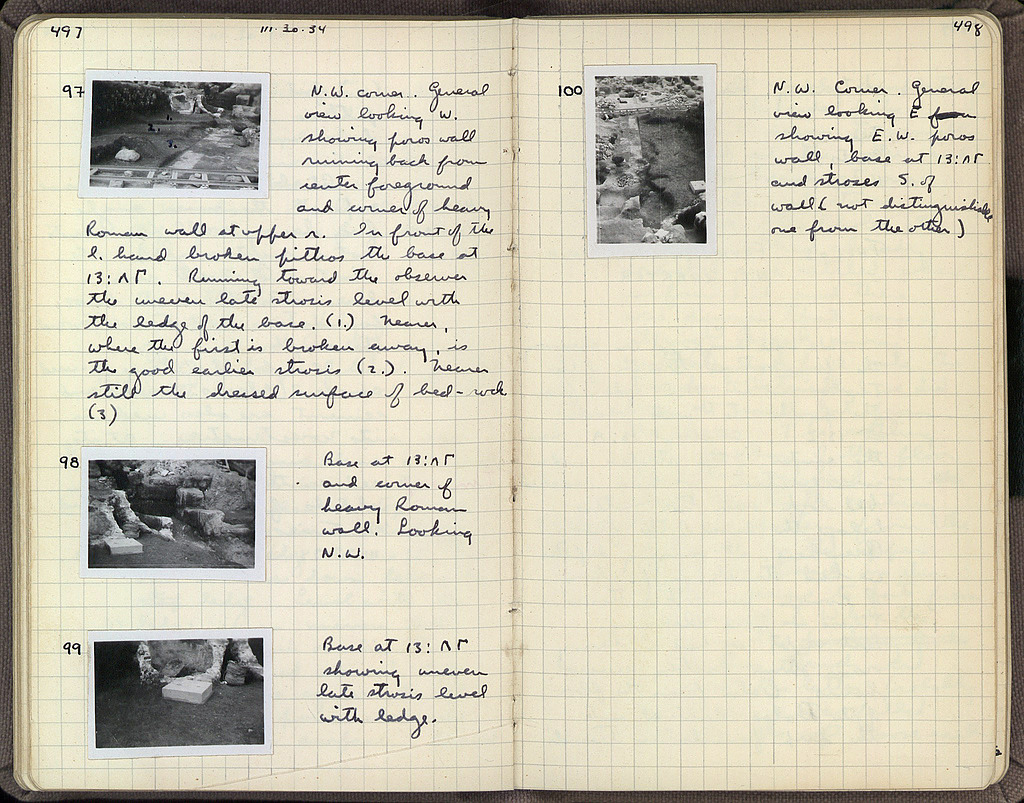 497
III·30·34
97
N.W. corner. General
view looking W.
showing poros wall
running back from
center foreground
and corner of heavy
Roman wall at upper r. In front of the
l. hand broken pithos the base at
13:ΛΓ. Running toward the observer
the uneven late strosis level with
the ledge of the base. (1.) Nearer,
where the first is broken away, is
the good earlier strosis (2.). Nearer
still the dressed surface of bed-rock
(3)
98
Base at 13:ΛΓ
and corner of
heavy Roman
wall. Looking
N.W.
99
Base at 13:ΛΓ
showing uneven
late strosis level
with ledge.
498
100
N.W. Corner. General
view looking E
showing E.W. poros
wall, base at 13:ΛΓ
and stroses S. of
wall (not distinguishable
one from the other)